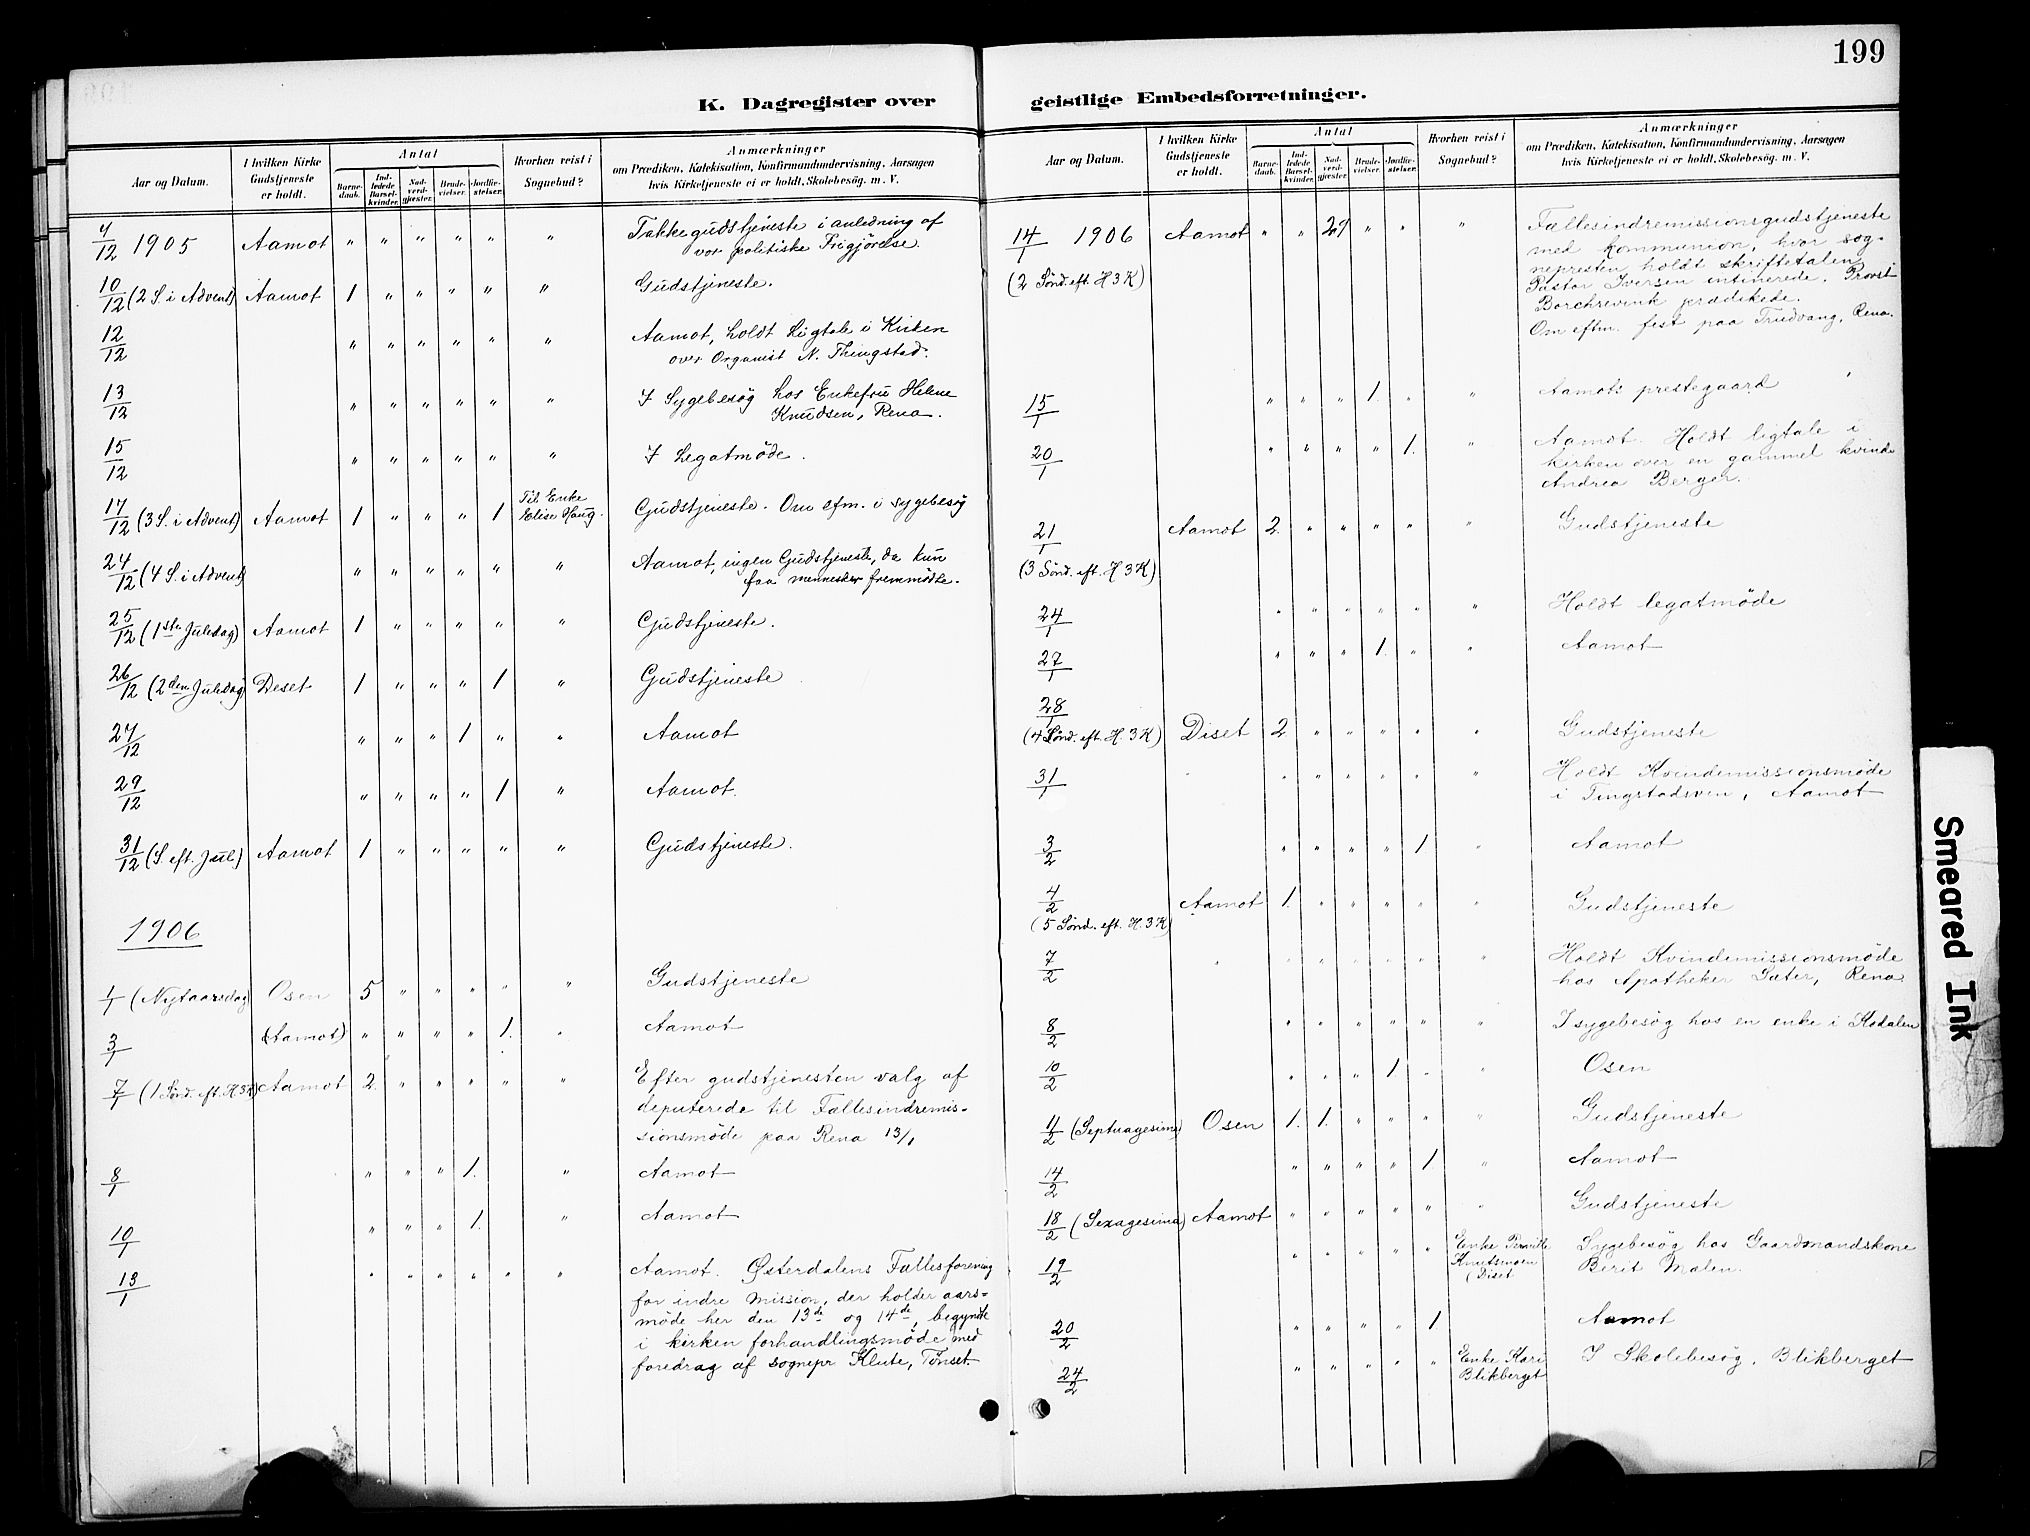 199
K. Dagregister over geistlige Embedsforretninger.
Aar og Datum.
I hvilken Kirke Gudstjeneste er holdt.
Antal
Barnedaab.
Indledede Barselkvinder.
Nadverdgjester.
Brudevielser.
Jordfæstelser.
Hvorhen reist i Sognebud?
Anmærkninger
om Prædiken, Katekisation, Konfirmandundervisning, Aarsagen
hvis Kirketjeneste ei er holdt, Skolebesøg. m. V.
4/12 1905 Aamot " " " " " " Takkegudstjeneste i anledning af
vor politiske Frigjörelse.
10/12 (2 S. i Advent) Aamot 1 " " " " " Gudstjeneste.
12/12 " " " " " " Aamot, holdt Ligtale i Kirken
over Organist N. Thingstad.
13/12 " " " " " " I Sygebesøg hos Enkefru Helene
Knudsen, Rena.
15/12 " " " " " " I Legatmöde.
17/12 (3 S. i Advent) Aamot 1 " " " 1 Til Enke
Elise Haug. Gudstjeneste. Om efm. i sygebesög
24/12 (4 S. i Advent) " " " " " " Aamot, ingen Gudstjeneste, da kun
faa mennesker fremmødte.
25/12 (1ste Juledag) Aamot 1 " " " " " Gudstjeneste.
26/12 (2den Juledag) Deset 1 " " " 1 " Gudstjeneste
27/12 " " " 1 " " Aamot
29/12 " " " " 1 " Aamot.
31/12 (S. eft. Jul.) Aamot 1 " " " " " Gudstjeneste.
1906
1/1 (Nytaarsdag) Osen 5 " " " " " Gudstjeneste
3/1 (Aamot) " " " " 1. " Aamot
7/1 (1 Sønd. eft. H3K) Aamot 2 " " " " " Efter gudstjenesten valg af
deputerede til Fællesindremis=
sionsmøde paa Rena 13/1
8/1 " " " 1. " Aamot
10/1 " " " 1. " Aamot
13/1 " " " " " " Aamot. Østerdalens Fællesforening
for indre mission, der holder aars=
møde her den 13de og 14de, begyndte
i kirken forhandlingsmøde med
foredrag af sognepr Klute, Tønset
Aar og Datum.
I hvilken Kirke Gudstjeneste er holdt.
Antal
Barnedaab.
Indledede Barselkvinder.
Nadverdgjester.
Brudevielser.
Jordfæstelser.
Hvorhen reist i Sognebud?
Anmærkninger
om Prædiken, Katekisation, Konfirmandundervisning, Aarsagen
hvis Kirketjeneste ei er holdt, Skolebesøg. m. V.
14/1 1906 Aamot " " 29 " " " Fællesindremissionsgudstjeneste
(2 Sønd. eft. H3K) med kommunion, hvor sog-
nepresten holdt skriftetalen,
Pastor Iversen intinerede. Provst
Borchrevink prædikede.
Om eftm. fest paa Trudvang, Rena.
15/1 " " " 1. " " Aamots prestegaard
20/1 " " " " 1. " Aamot. Holdt ligtale i
kirken over en gammel kvinde
Andrea Berger.
21/1 Aamot 2 " " " " " Gudstjeneste
(3 Sønd. eft. H3K)
24/1 " " " " " " Holdt legatmøde
27/1 " " " 1. " " Aamot
28/1
(4 Sønd. eft. H. 3K) Diset 2 " " " " " Gudstjeneste
31/1 " " " " " " " Holdt Kvindemissionsmøde
i Tingstadsven, Aamot
3/2 " " " " 1 " Aamot
4/2 Aamot 1. " " " " " Gudstjeneste
(5 Sønd. eft. H.3K)
7/2 " " " " " " " Holdt Kvindemissionsmøde
hos Apotheker Sæter, Rena
8/2 " " " " " " I sygebesøg hos en enke i Kodalen
10/2 " " " 1. " " Osen
11/2 (Septuagesima) Osen 1. 1. " " " " Gudstjeneste
14/2 " " " " 1 " Aamot
18/2 (Sexagesima) Aamot " " " " " " Gudstjeneste
19/2 " " " " " Enke Pernille
Knutsmoen
(Diset Sygebesøg hos Gaardmandskone
Berit Mælen.
20/2 " " " " 1 Aamot
24/2 " " " " " Enke Kari
Blikberget I Skolebesøg, Blikberget
Smeared Ink